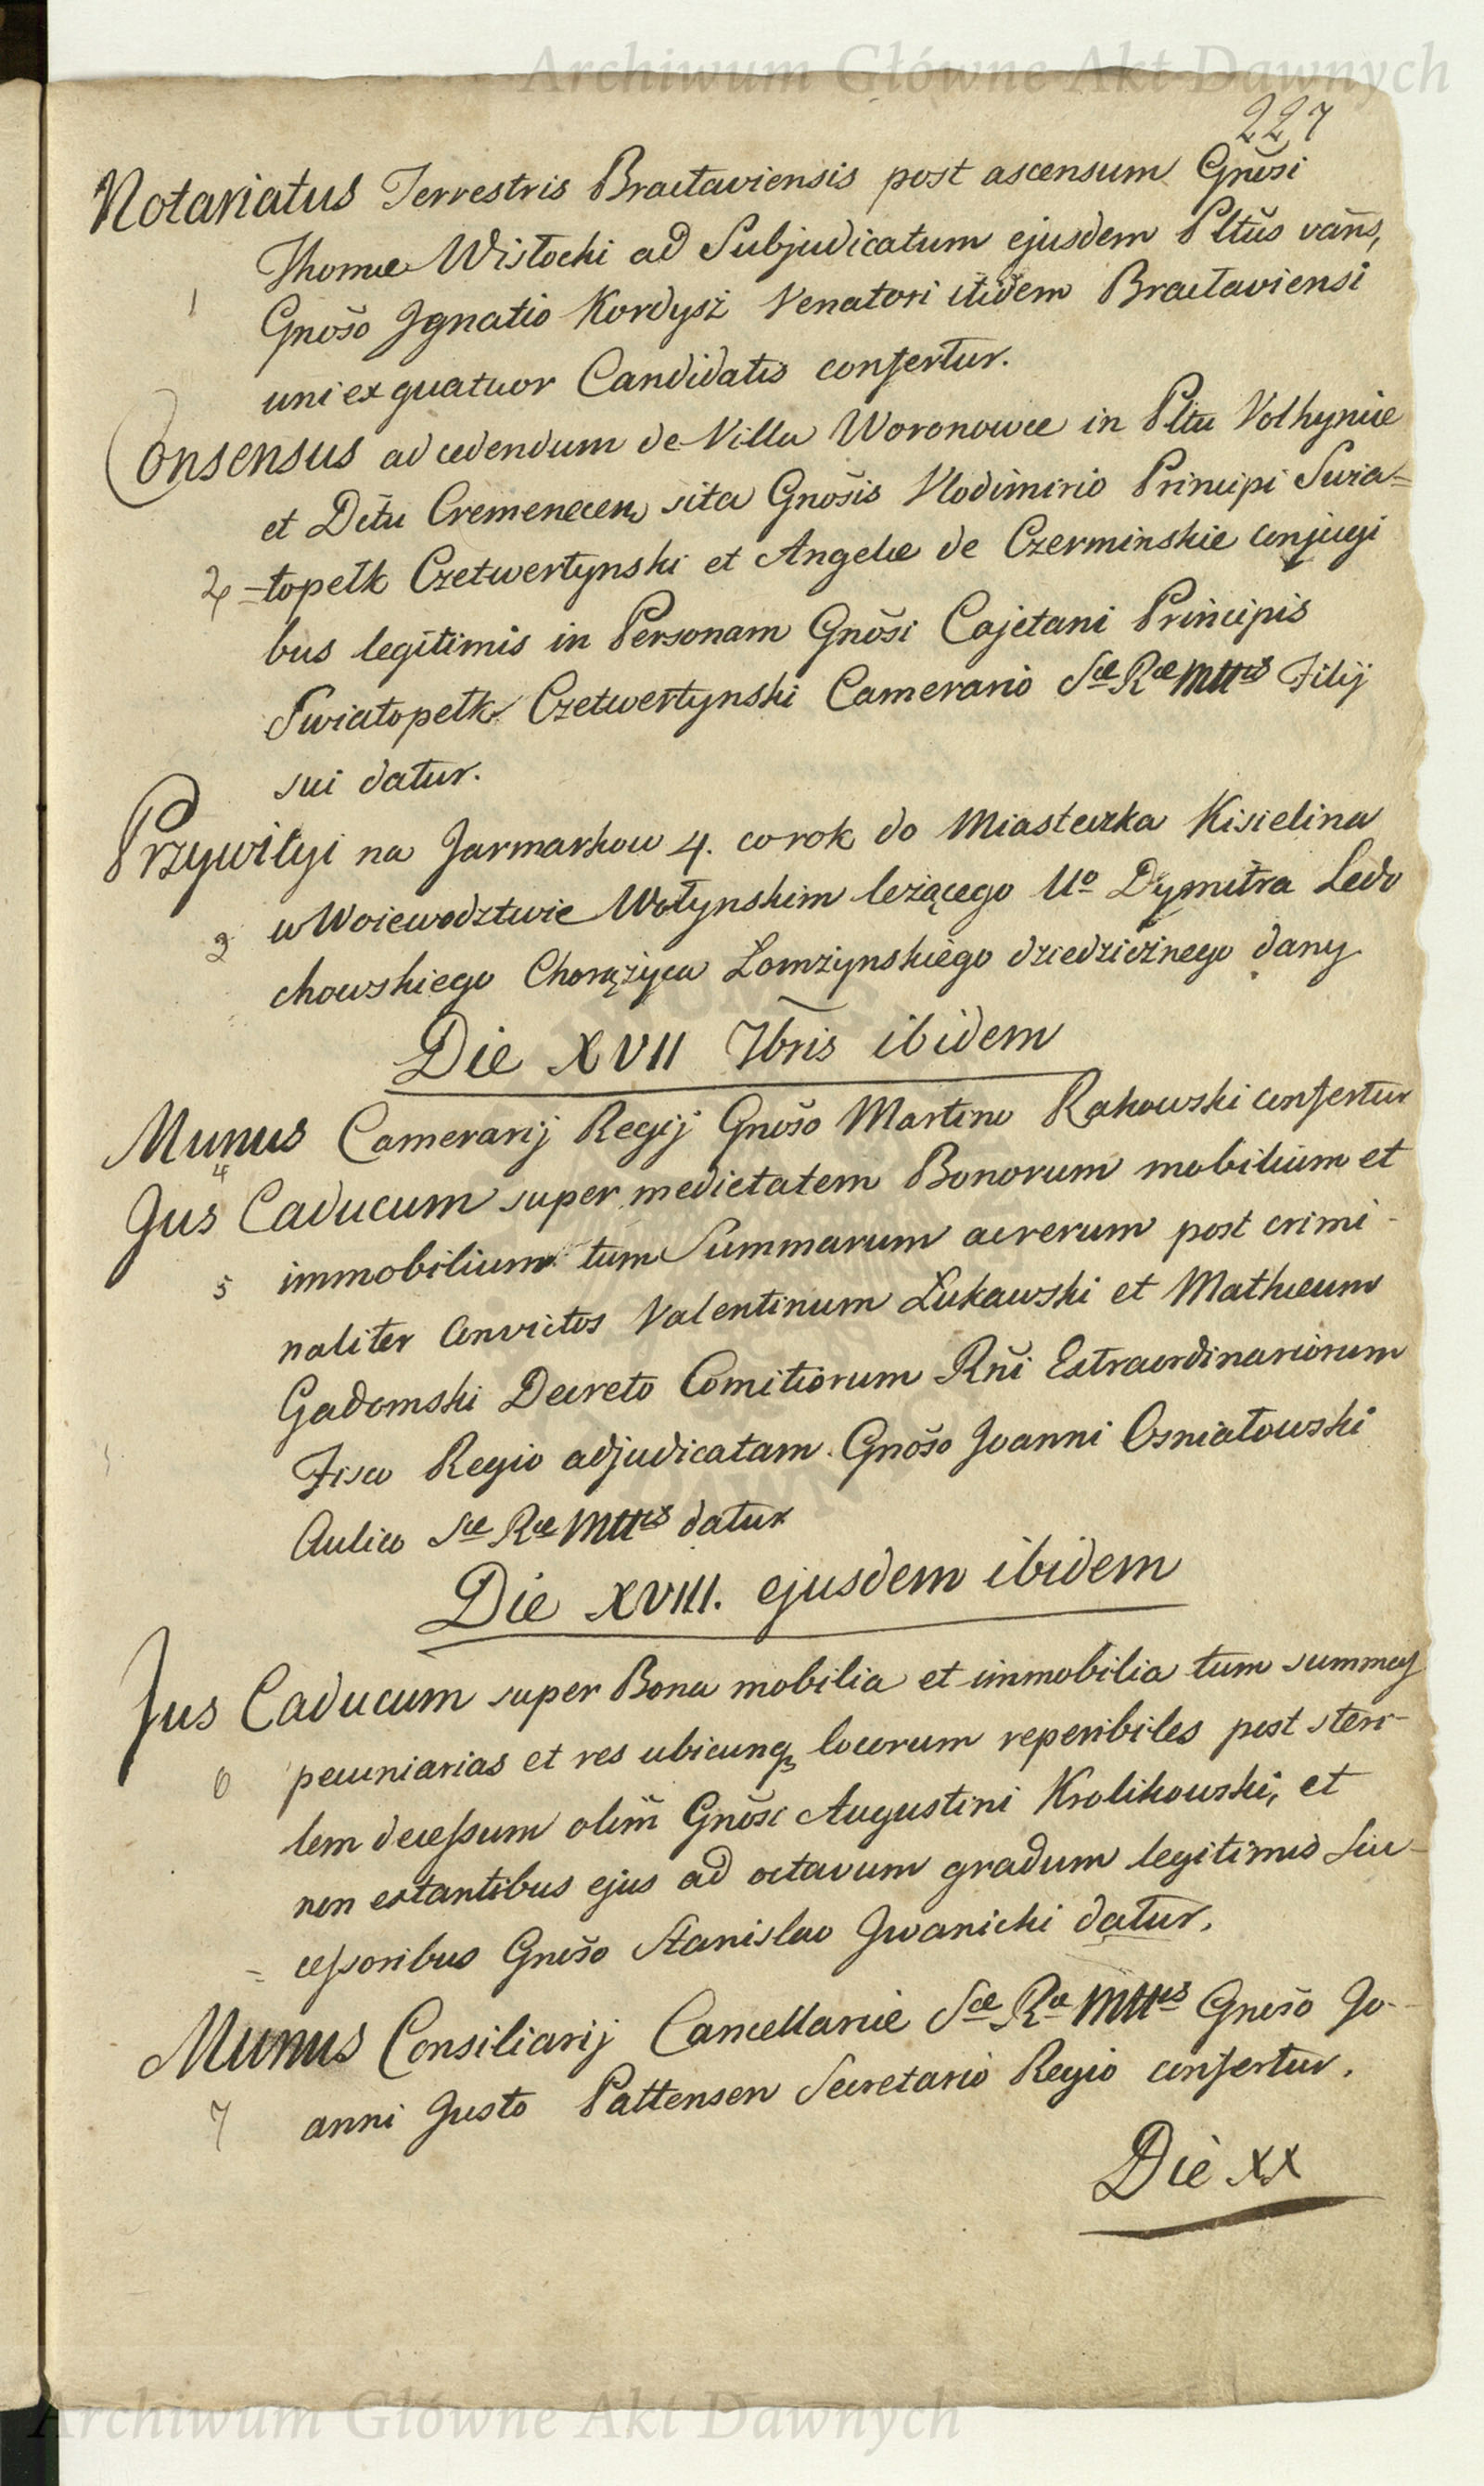 Archiwum Główne Akt Dawnych
227
Notariatus Terrestris Braclaviensis post ascensum Gnosi
Thomae Wisłocki ad Subjudicatum ejusdem Pltus vans,
1 Gnoso Ignatio Kordysz Venatori itidem Braclaviensi
uni ex quatuor Candidatis confertur.
Consensus ad cedendum de Villa Woronowce in Pltu Volhyniae
et Dctu Cremenecen sita Gnosis Vlodimirio Principi Swia=
2 =topełk Czetwertynski et Angelae de Czerminskie conjugi
bus legitimis in Personam Gnosi Cajetani Principis
Swiatopełk Czetwertynski Camerario Sae Rae Mttis Filij
sui datur.
Przywilyi na Jarmarkow 4. co rok do Miasteczka Kisielina
w Woiewodztwie Wołynskim leżącego Uo Dymitra Ledo
3 chowskiego Chorążyca Lomżynskiego dziedzicznego dany
Die XVII 7bris ibidem
Munus Camerarij Regij Gnoso Martino Rakowski confertur
4
Jus Caducum super medietatem Bonorum mobilium et
5 immobilium tum Summarum ac rerum post crimi-
naliter Convictos Valentinum Lukawski et Mathaeum
Gadomski Decreto Comitiorum Rni Extraordinariorum
Fisco Regio adjudicatam. Gnoso Joanni Osniałowski
Aulico Sae Rae Mttis datur
Die XVIII. ejusdem ibidem
Jus Caducum super Bona mobilia et immobilia tum summas
6 pecuniarias et res ubicunq locorum reperibiles post steri-
lem decessum olim Gnosi Augustini Krolikowski, et
non extantibus ejus ad octavum gradum legitimis Suc-
= cessoribus Gnoso Stanislao Iwanicki datur.
Munus Consiliarij Cancellariae Sae Rae Mttis Gnoso Jo-
7 anni Justo Pattensen Secretario Regio confertur.
Die XX
Archiwum Główne Akt Dawnych